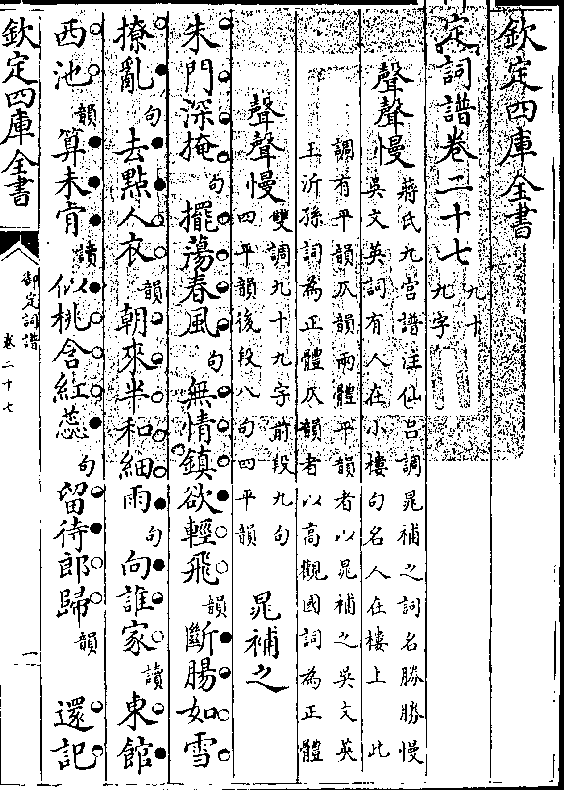 欽定四庫全書
定詞譜卷二十七 九十
九字
聲聲慢 蔣氏九宮譜注仙呂調晁補之詞名勝勝慢
吳文英詞有人在小樓句名人在樓上 此
調有平韻仄韻兩體平韻者以晁補之吳文英
王沂孫詞為正體仄韻者以高觀國詞為正體
聲聲慢 雙調九十九字前段九句
四平韻後段八句四平韻 晁補之
朱門深掩句擺蕩春風句無情鎮欲輕飛韻斷腸如雪
撩亂句去點人衣韻朝來半和細雨句向誰家讀東館
西池韻算未肯讀似桃含紅蕊句留待郎歸韻 還記
欽定四庫全書
御定詞譜
卷二十七
一